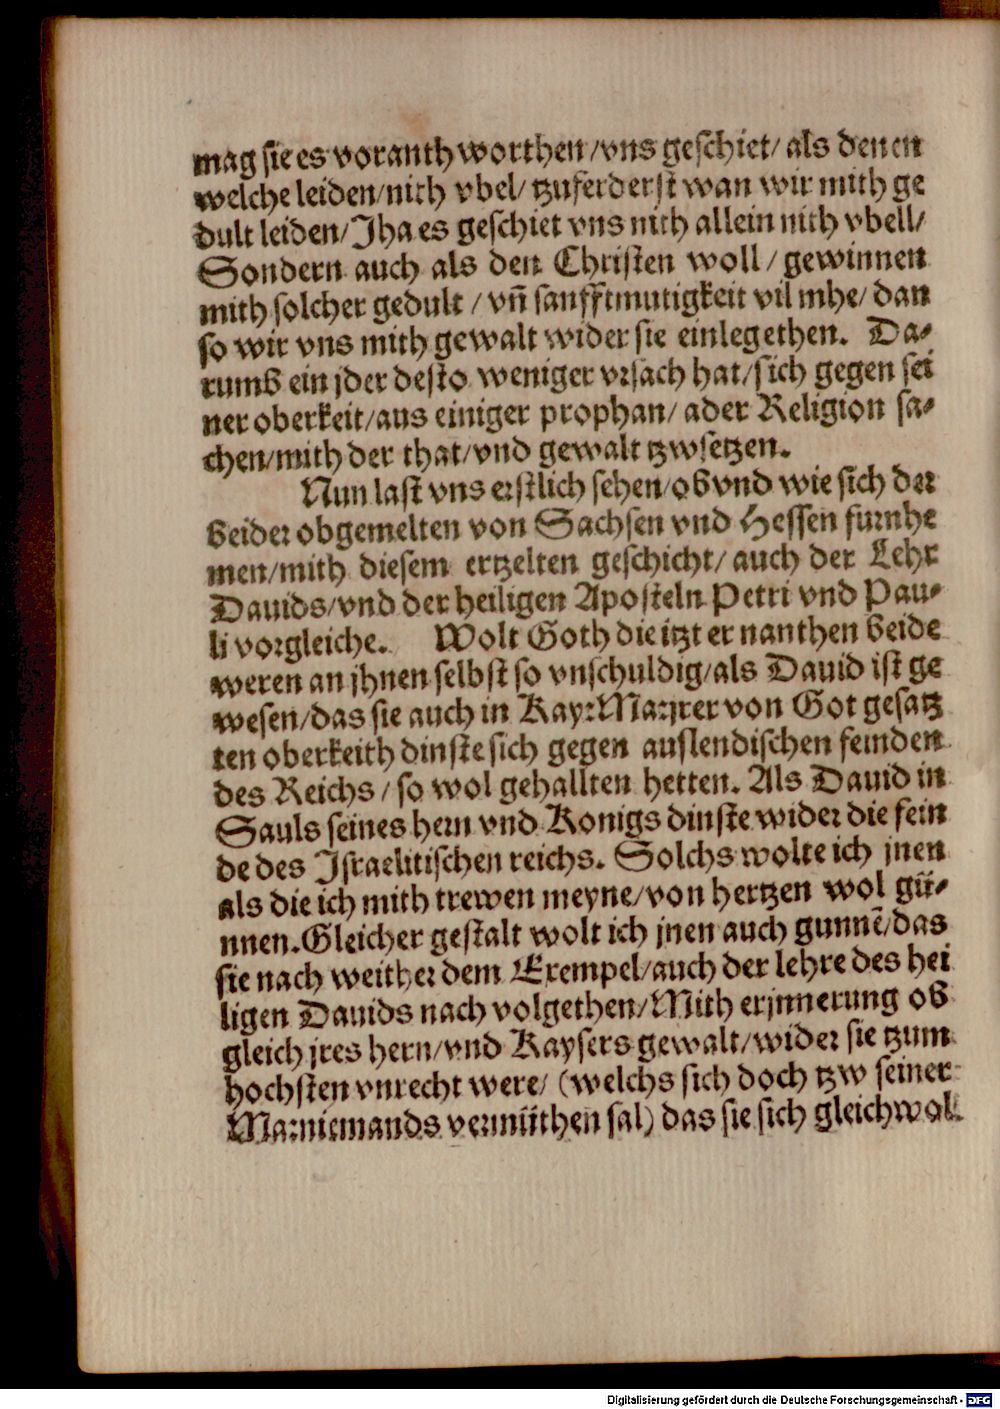 mag sie es voranthworthen/vns geschiet/ als denen
welche leiden/nith vbel/ tzuferderst wan wir mith ge
dult leiden/Jha es geschiet vns nith allein nith vbell/
Sondern auch als den Christen woll/ gewinnen
mith solcher gedult / vñ sanfftmutigkeit vil mhe/ dan
so wir vns mith gewalt wider sie einlegethen. Da⸗
rumb ein jder desto weniger vrsach hat/sich gegen sei
ner oberkeit/aus einiger prophan/ ader Religion sa⸗
chen/mith der that/vnd gewalt tzwsetzen.
Nun last vns erstlich sehen/ob vnd wie sich der
beider obgemelten von Sachsen vnd Hessen furnhe
men/mith diesem ertzelten geschicht/ auch der Lehr
Dauids/vnd der heiligen Aposteln Petri vnd Pau⸗
li vorgleiche. Wolt Goth die itzt er nanthen beide
weren an jhnen selbst so vnschuldig/als Dauid ist ge
wesen/das sie auch in Kay: Ma: jrer von Got gesatz
ten oberkeith dinste sich gegen auslendischen feinden
des Reichs / so wol gehallten hetten. Als Dauid in
Sauls seines hern vnd Konigs dinste wider die fein
de des Israelitischen reichs. Solchs wolte ich jnen
als die ich mith trewen meyne/von hertzen wol gü⸗
nnen. Gleicher gestalt wolt ich jnen auch gunnē/das
sie nach weither dem Exempel/auch der lehre des hei
ligen Dauids nach volgethen/Mith erjnnerung ob
gleich jres hern/vnd Kaysers gewalt/wider sie tzum
hochsten vnrecht were/ (welchs sich doch tzw seiner
Ma: niemands vermüthen sal) das sie sich gleichwol
Digitalisierung gefördert durch die Deutsche Forschungsgemeinschaft - DFG